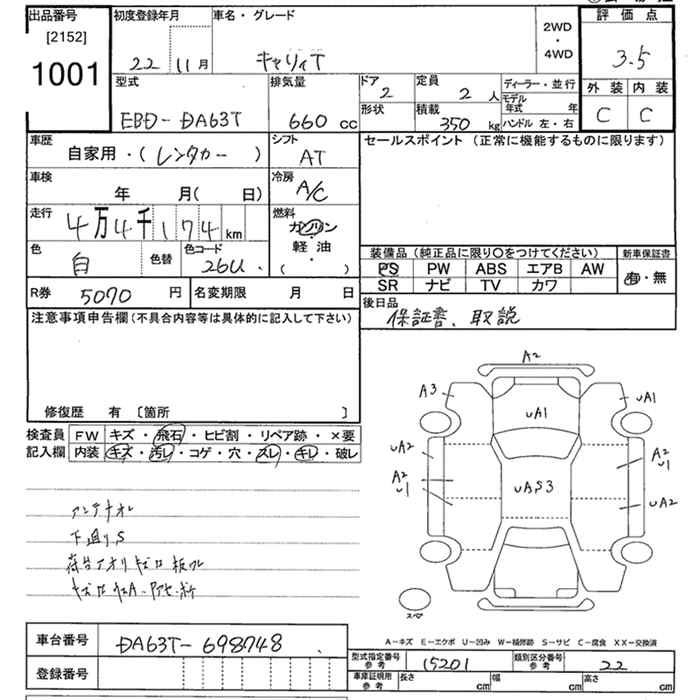 出品番号
[2152]
1001
初度登録年月
22 11月
車名・グレード
キャリィT
2WD
・
4WD
評価点
3.5
外装 内装
C C
型式
EBD-DA63T
排気量
660 cc
ドア
2
定員
2 人
形状
積載
350 kg
ディーラー・並行
モデル年式 年
ハンドル 左・右
車歴
自家用・(レンタカー)
シフト
AT
セールスポイント (正常に機能するものに限ります)
車検
年 月( 日)
冷房
A/C
走行
4万4千174km
燃料
ガソリン
軽油
( ・ )
色
白
色替
色コード
26U
装備品 (純正品に限り〇をつけてください)
PS PW ABS エアB AW
SR ナビ TV カワ
新車保証書
有・無
R券 5070 円
名変期限 月 日
後日品
保証書、取説
注意事項申告欄 (不具合内容等は具体的に記入して下さい)
修復歴 有 [箇所 ]
検査員
記入欄
FW キズ・飛石・ヒビ割・リペア跡・×要
内装 キズ・汚レ・コゲ・穴・スレ・キレ・破レ
アンテナオレ
下廻りS
A2
A3
UA1
UA1
UA2
A2
U1
UAS3
A2
U1
UA2
スペア
A-キズ E-エクボ U-凹み W-補修跡 S-サビ C-腐食 XX-交換済
車台番号 DA63T-698748
登録番号
型式指定番号
参考
15201
類別区分番号
参考
22
車庫証明用
参考
長さ cm 幅 cm 高さ cm